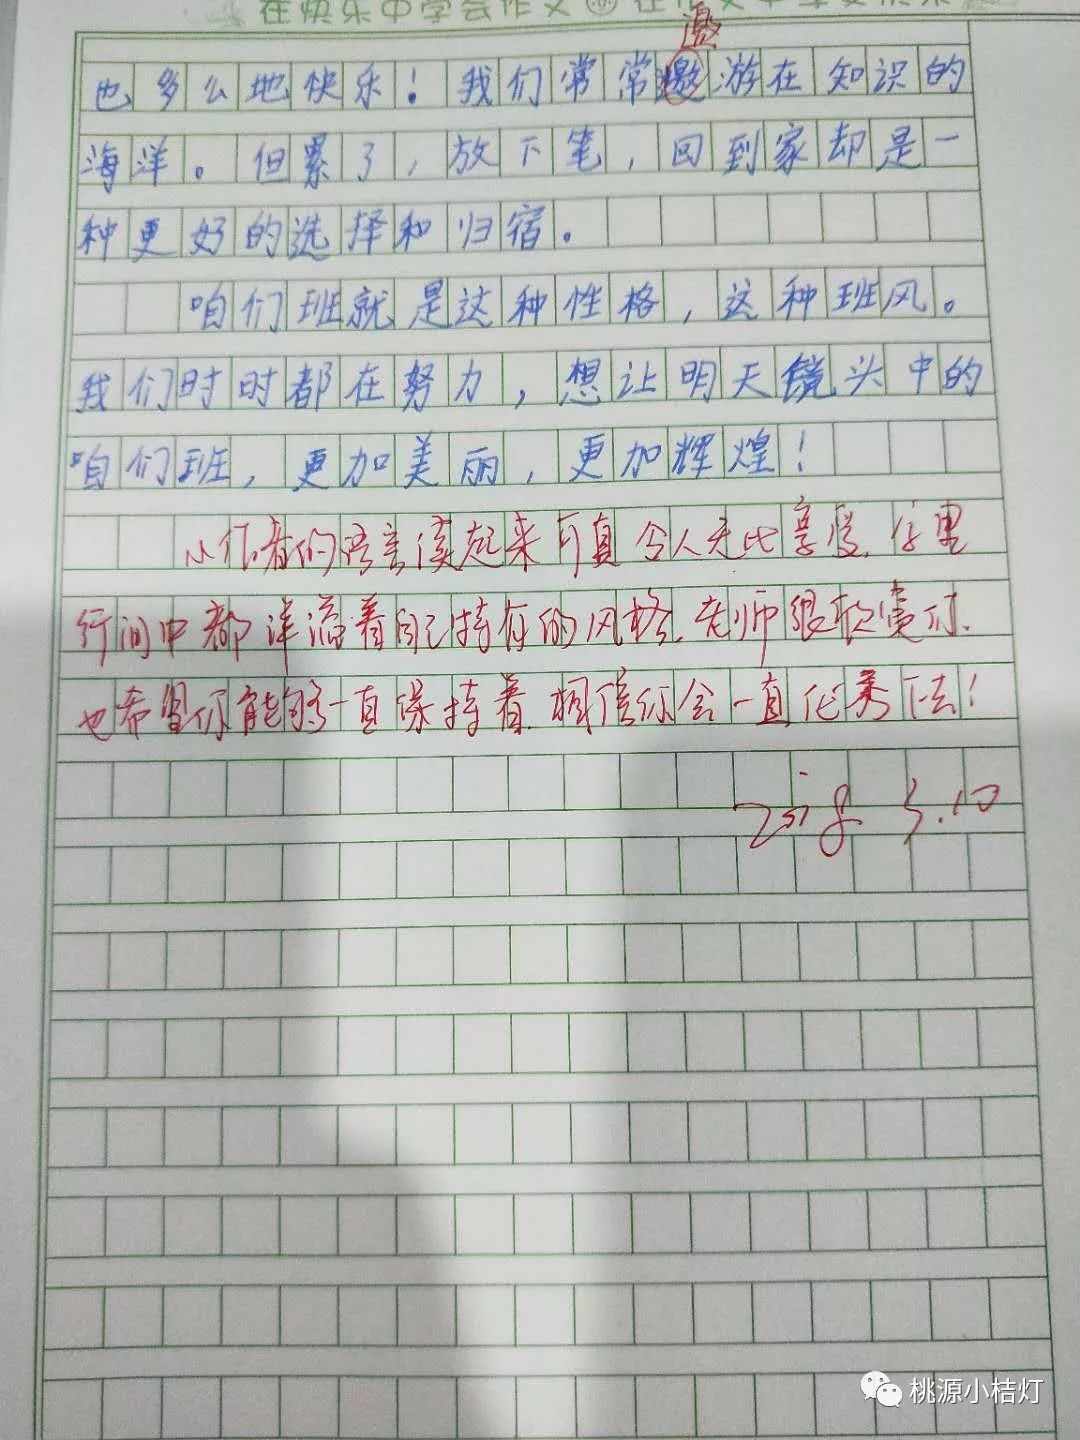 在快乐中学会作文
也多么地快乐！我们常常邀游在知识的
遨
海洋。但累了，放下笔，回到家却是一
种更好的选择和归宿。
咱们班就是这种性格，这种班风。
我们时时都在努力，想让明天镜头中的
咱们班，更加美丽，更加辉煌！
小作者的语言读起来可真令人无比享受，字里
行间中都洋溢着自己特有的风格，老师很欣赏你，
也希望你能够一直保持着，相信你会一直优秀下去！
2018 5.10
桃源小桔灯